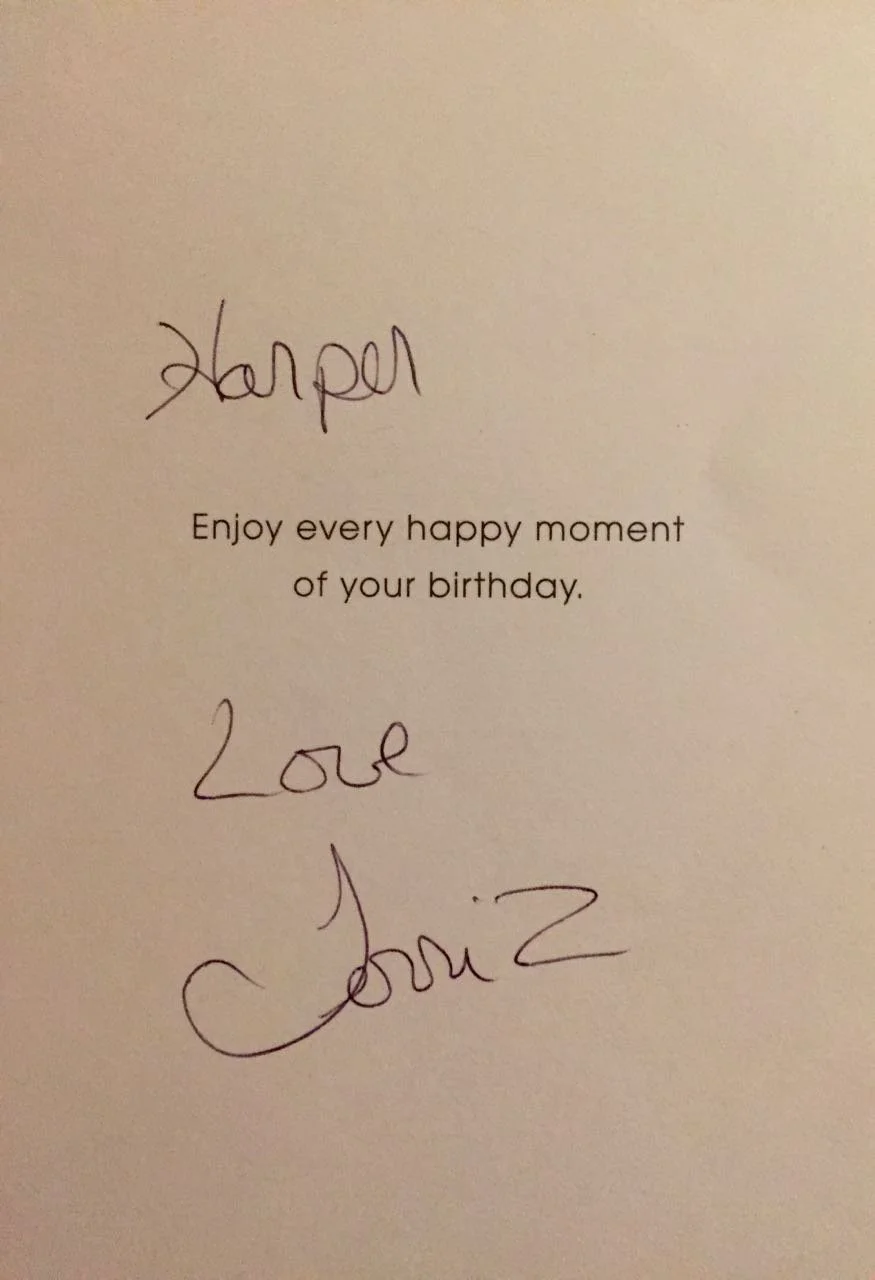 Harper
Enjoy every happy moment
of your birthday.
Love